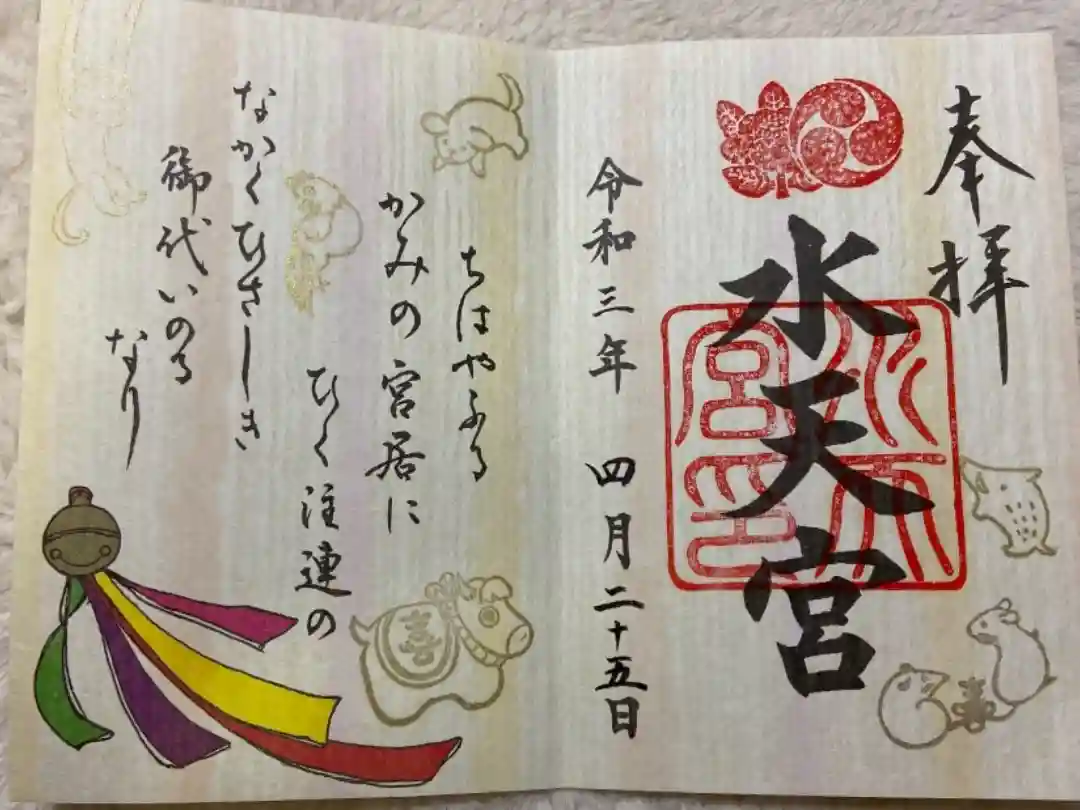 奉拝
水天宮
令和三年 四月二十五日
ちはやふる
かみの宮居に
ひく注連の
なかくひさしき
御代いのる
なり
水天宮印
喜